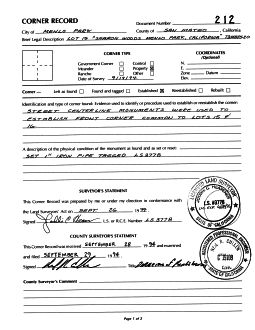 CORNER RECORD
Document Number 212
City of MENLO PARK County of SAN MATEO, California
Brief Legal Description LOT 15 "SHARON WOODS MENLO PARK, CALIFORNIA"
CORNER TYPE
COORDINATES
(Optional)
Government Corner Control N.
Meander Property E.
Rancho Other Zone Datum
Date of Survey Elev.
Corner — Left as found Found and tagged Established Reestablished Rebuilt
Identification and type of corner found: Evidence used to identify or procedure used to establish or reestablish the corner:
STREET CENTERLINE MONUMENTS WERE USED TO
ESTABLISH FRONT CORNER COMMON TO LOTS 15 &
16
A description of the physical condition of the monument as found and as set or reset:
SET 1" IRON PIPE TAGGED LS 3778
SURVEYOR'S STATEMENT
This Corner Record was prepared by me or under my direction in conformance with
the Land Surveyors' Act on SEPT. 26, 1994
Signed L.S. or R.C.E. Number LS 3778
COUNTY SURVEYOR'S STATEMENT
This Corner Record was received SEPTEMBER 28 1994 and examined
and filed SEPTEMBER 29, 1994
Signed Title
County Surveyor's Comment
Page 1 of 2